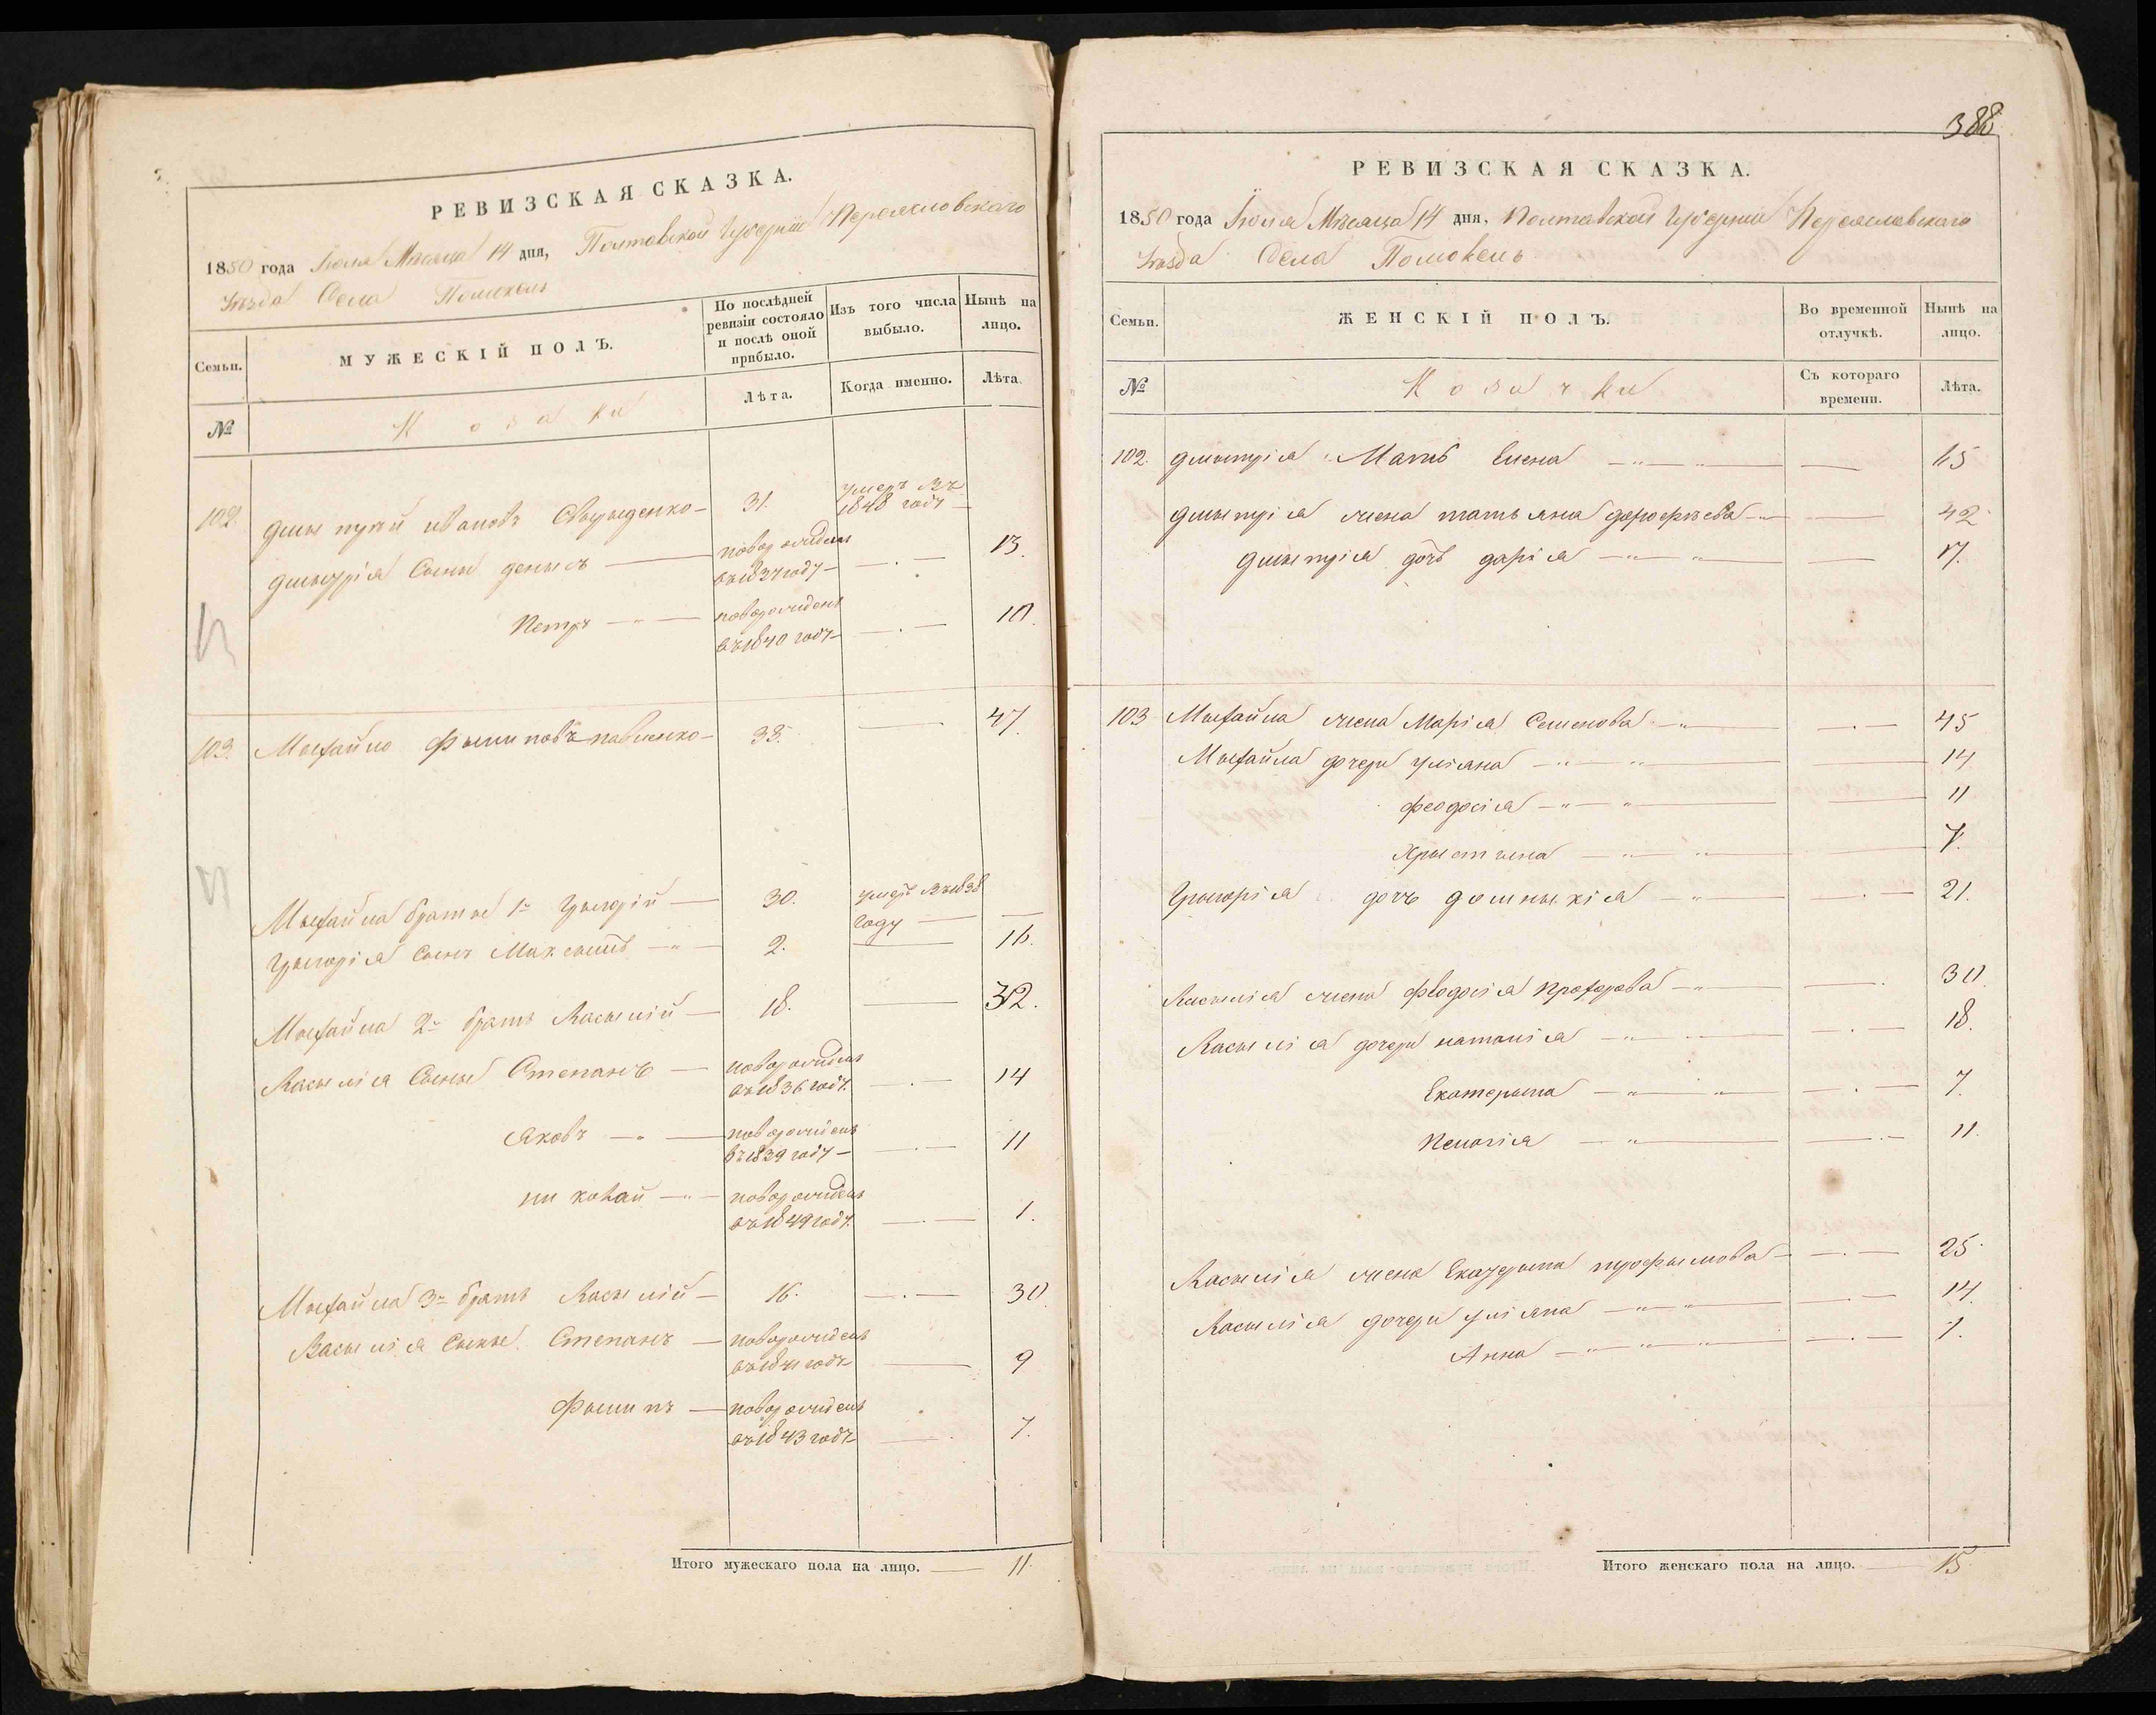 РЕВИЗСКАЯ СКАЗКА.
1850 года Іюля Мѣсяца 14 дня, Полтавской Губерніи Переяславскаго
Уѣзда Села Помокель
Семьи.
МУЖЕСКІЙ ПОЛЪ.
По послѣдней ревизіи состояло и послѣ оной прибыло.
Изъ того числа выбыло.
Нынѣ на лицо.
№
Козаки
Лѣта.
Когда именно.
Лѣта.
102. Дмытрій Ивановъ 31. умеръ въ 1848 году
Дмытрія Сыны Денысъ новорожденъ въ 1837 году 13.
Петръ новорожденъ въ 1840 году 10.
103. Мыхайло Фылиповъ Павленко 33. 47.
Мыхайла братья 1й Грыгорій 30. умеръ въ 1838 году
Грыгорія Сынъ Максымъ 2. 16.
Мыхайла 2й братъ Василій 18. 32.
Васылія Сыны Степанъ новорожденъ въ 1836 году 14
Яковъ новорожденъ въ 1839 году 11
Николай новорожденъ въ 1849 году 1.
Мыхайла 3й братъ Васылій 16. 30
Васылія Сыны Степанъ новорожденъ въ 1841 году 9
Фылипъ новорожденъ въ 1843 году 7.
Итого мужескаго пола на лицо. 11.
388
РЕВИЗСКАЯ СКАЗКА.
1850 года Іюля Мѣсяца 14 дня, Полтавской Губерніи Переяславскаго
Уѣзда Села Помокель
Семьи.
ЖЕНСКІЙ ПОЛЪ.
Во временной отлучкѣ.
Нынѣ на лицо.
№
Козачки
Съ котораго времени.
Лѣта.
102. Дмытрія Мать Елена 65
Дмытрія жена Татьяна Дорофѣева 42
Дмытрія дочь Дарія 17.
103 Мыхайла жена Марія Семенова 45
Мыхайла дочери Уліяна 14
Феодосія 11
Хрыстына 7.
Грыгорія дочь Домныкія 21.
Васылія жена Феодосія Прохорова 30
Васылія дочери Наталія 18.
Екатерына 7.
Пелагія 11.
Васылія жена Екатерына Трофымова 25
Васылія дочери Уліяна 14
Анна 1.
Итого женскаго пола на лицо. 15